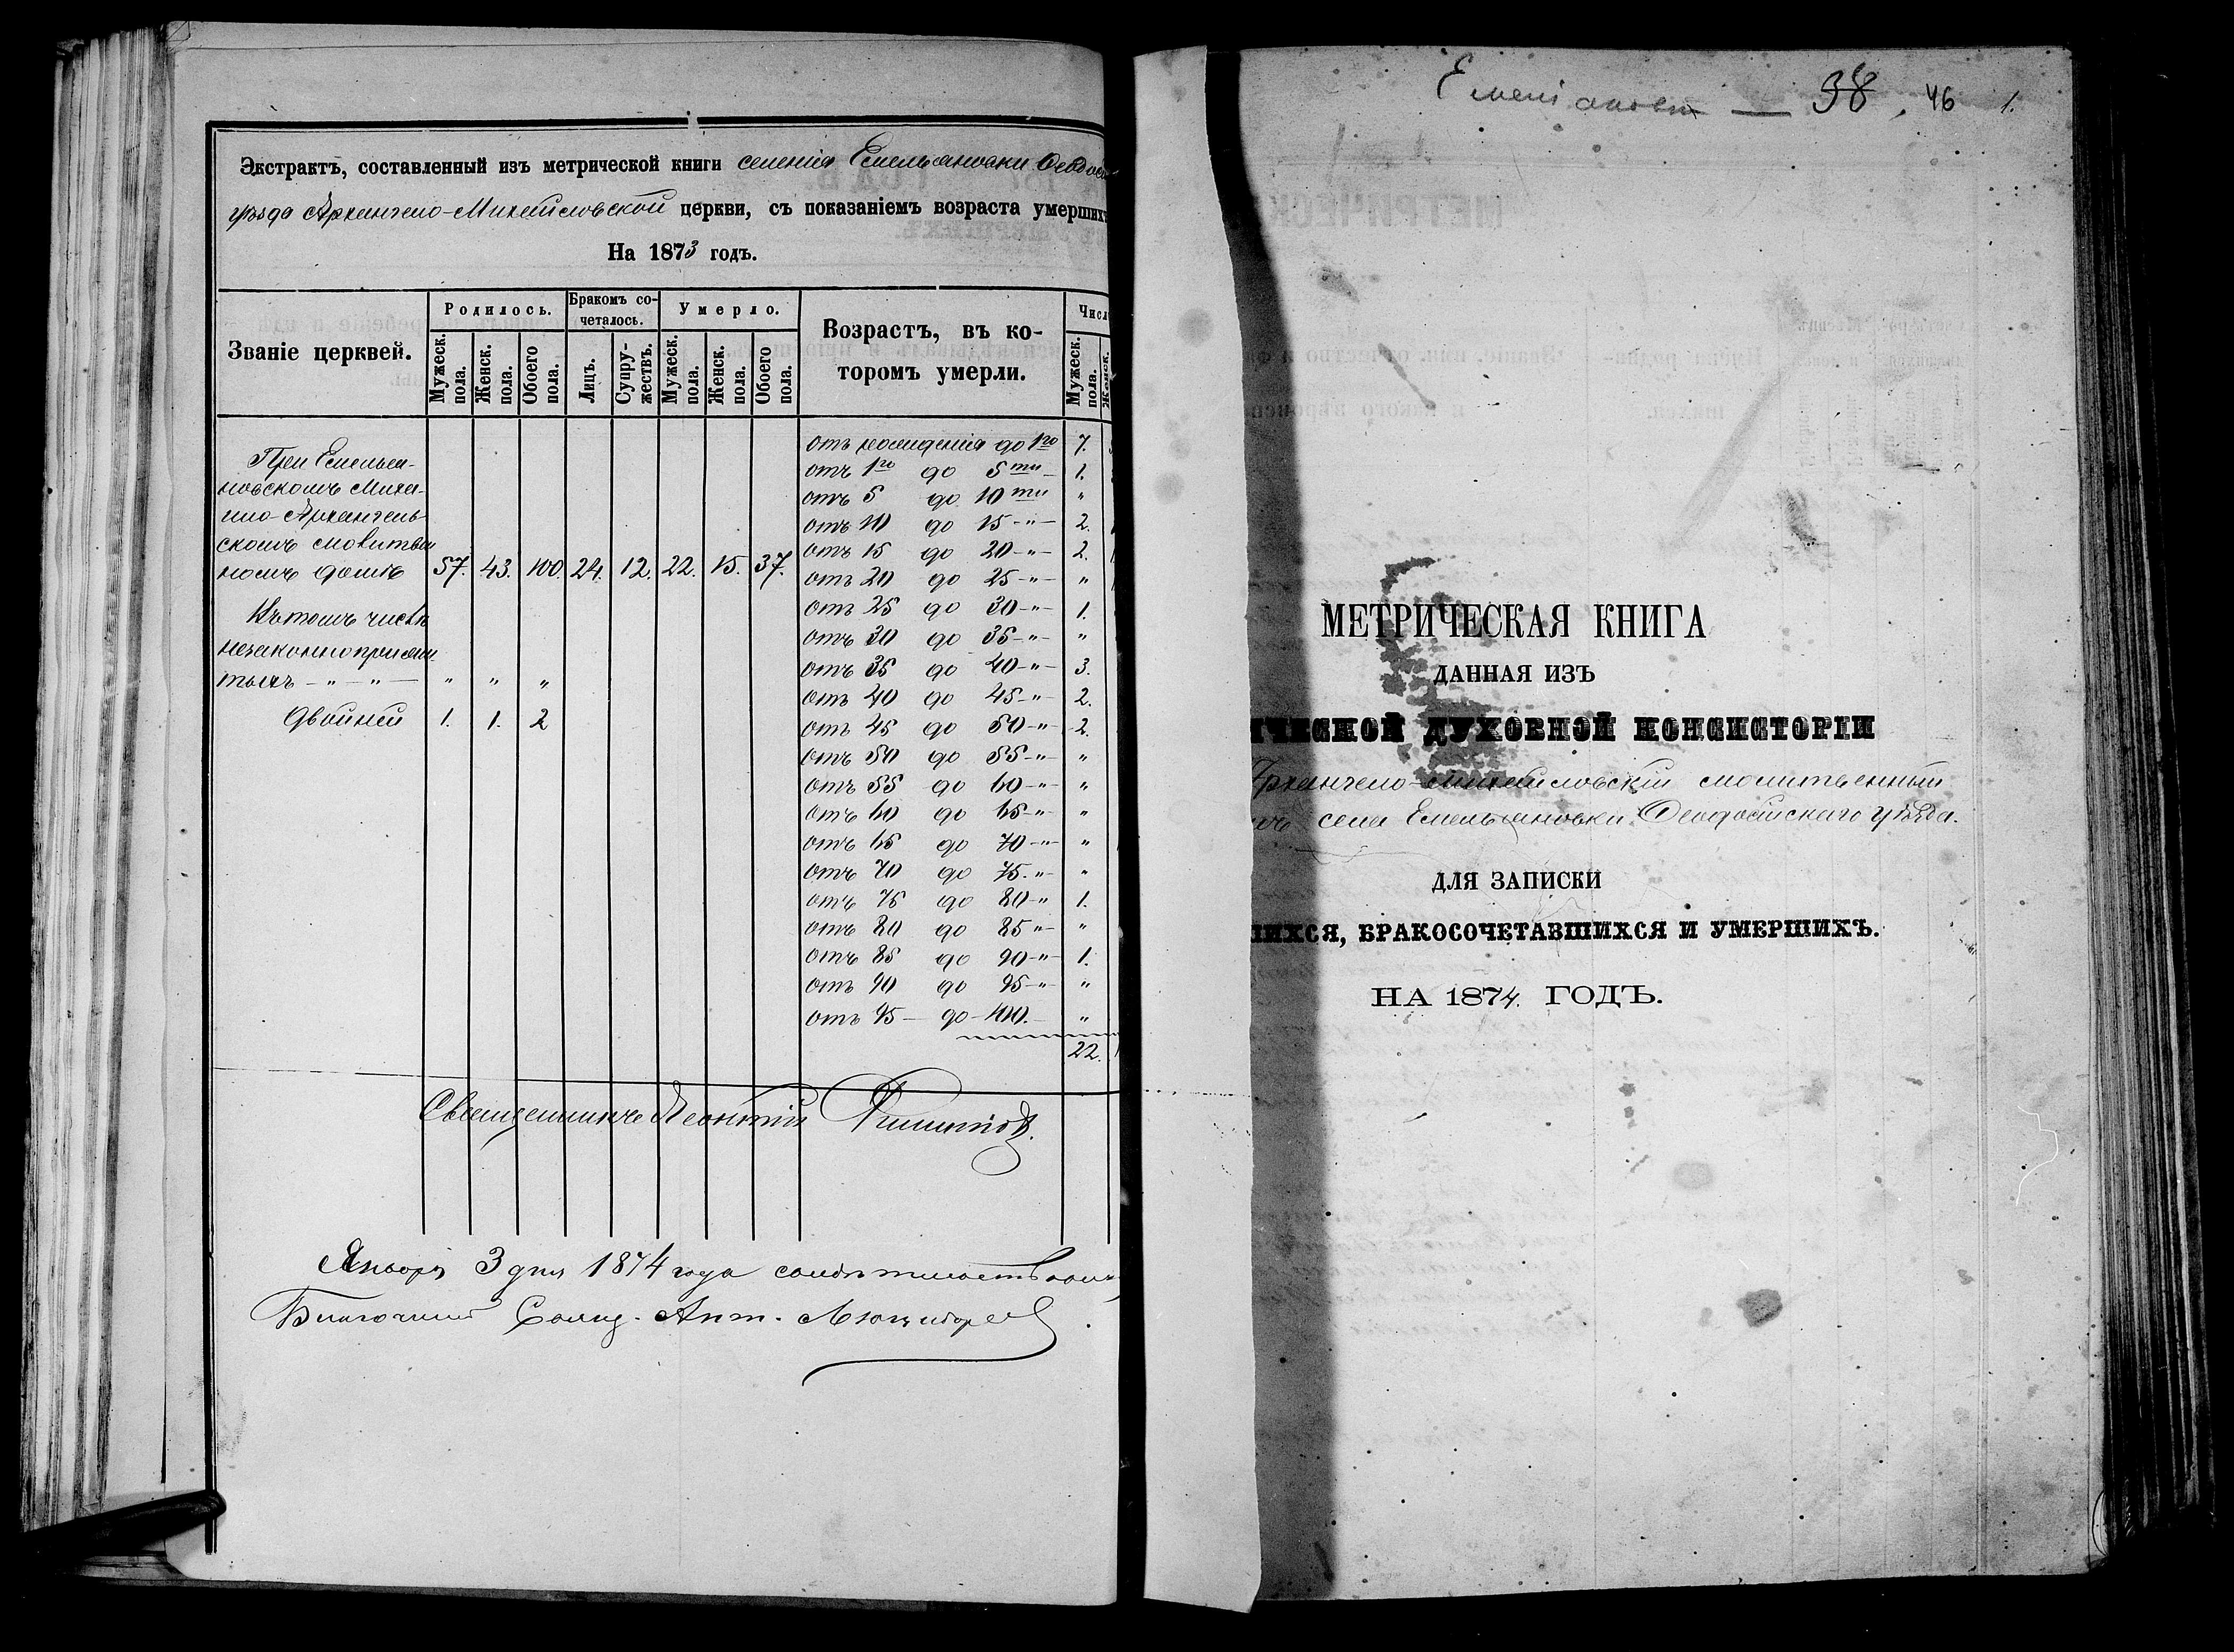 Экстрактъ, составленный изъ метрической книги селенія Емельяновки Ѳеодос
уѣзда Архангело-Михайловской церкви, съ показаніемъ возраста умершихъ
На 1873 годъ.
Званіе церквей.
Родилось.
Бракомъ со-
четалось.
Умерло.
Возрастъ, въ ко-
торомъ умерли.
Числ
Мужеск. пола.
Женск. пола.
Обоего пола.
Лицъ.
Супру-
жествъ.
Мужеск. пола.
Женск. пола.
Обоего пола.
Мужеск. пола.
Женск.
При Емелья-
новскомъ Миха-
ило-Архангель-
скомъ молитвен
номъ домѣ 57. 43. 100. 24. 12. 22. 15. 37.
Въ томъ числѣ
незаконноприжи
тыхъ -"-"- " " "
двойни 1. 1. 2
отъ рожденія до 1го 7.
отъ 1го до 5ти 1.
отъ 5 до 10ти "
отъ 10 до 15-"- 2.
отъ 15 до 20-"- 2.
отъ 20 до 25-"- "
отъ 25 до 30-"- 1.
отъ 30 до 35-"- "
отъ 35 до 40-"- 3.
отъ 40 до 45-"- 2.
отъ 45 до 50-"- 2.
отъ 50 до 55-"- "
отъ 55 до 60-"- "
отъ 60 до 65-"- "
отъ 65 до 70-"- "
отъ 70 до 75.-"- "
отъ 75 до 80-" 1.
отъ 80 до 85"- "
отъ 85 до 90-"- 1.
отъ 90 до 95-"- "
отъ 95 - до -100.- "
22.
Священникъ Леонтій
Января 3 дня 1874 года свидѣтельствовалъ
Благочинный Свящ. Ант.
38. 46 1.
МЕТРИЧЕСКАЯ КНИГА
ДАННАЯ ИЗЪ
ИЧЕСКОЙ ДУХОВНОЙ КОНСИСТОРІИ
Архангело-Михайловскій молитвенный
мъ села Емельяновки Ѳеодосійскаго уѣзда.
ДЛЯ ЗАПИСКИ
ШИХСЯ, БРАКОСОЧЕТАВШИХСЯ И УМЕРШИХЪ.
НА 1874. ГОДЪ.